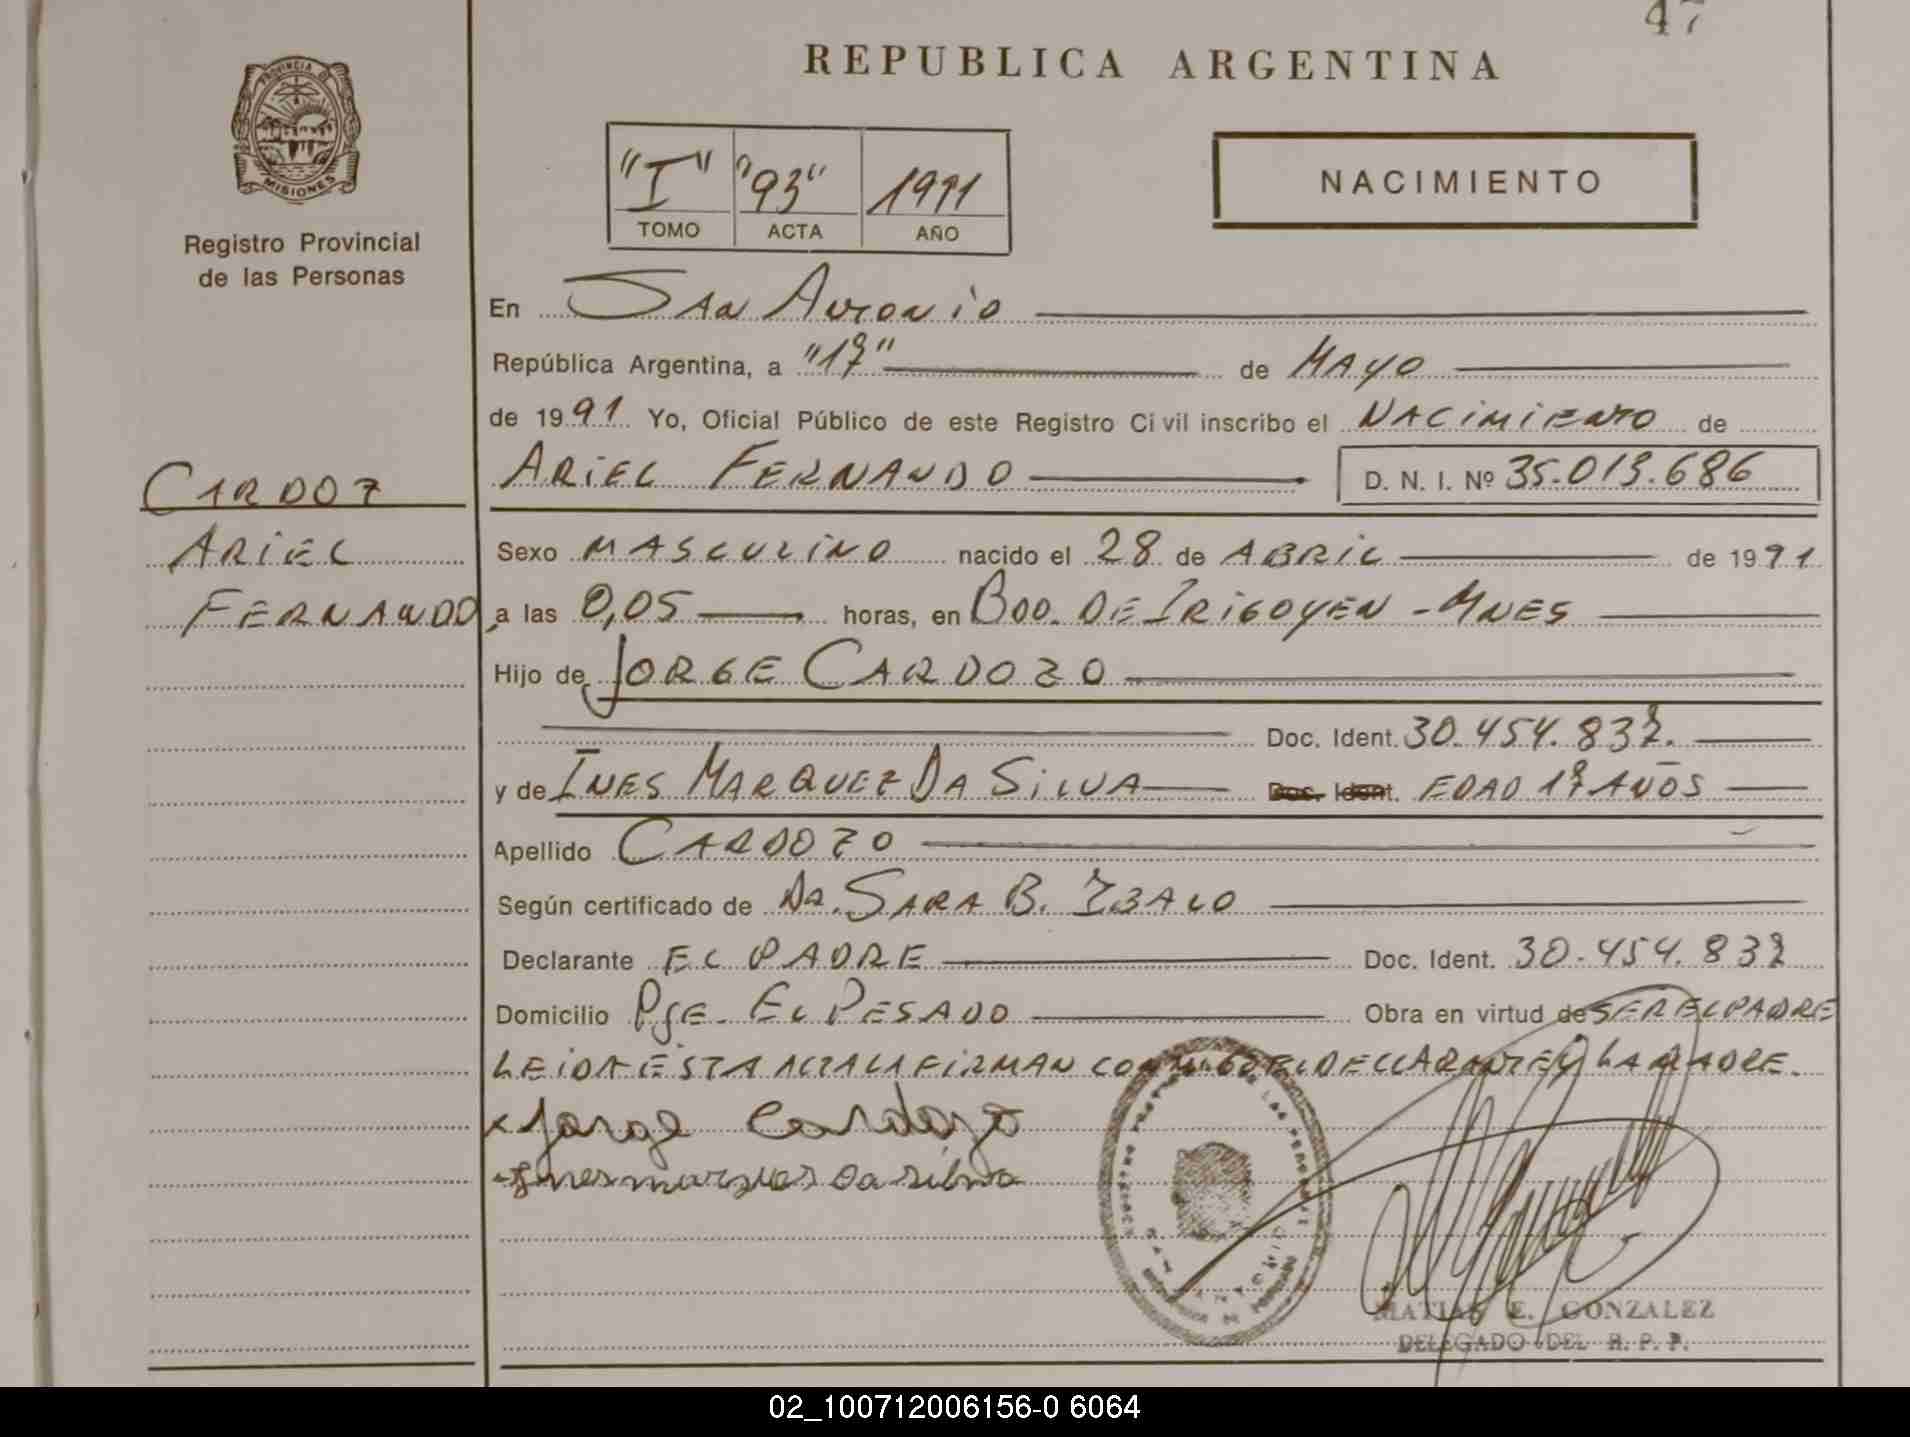 47
REPUBLICA ARGENTINA
PROVINCIA DE
MISIONES
Registro Provincial
de las Personas
"I" "93" 1991
TOMO ACTA AÑO
NACIMIENTO
En San Antonio
República Argentina, a "17" de MAYO
de 1991 Yo, Oficial Público de este Registro Civil inscribo el NACIMIENTO de
ARIEL FERNANDO D. N. I. Nº 35.013.686
CARDOZ
ARIEL
FERNANDO
Sexo MASCULINO nacido el 28 de ABRIL de 1991
a las 0,05 horas, en BDO. DE IRIGOYEN - MNES
Hijo de JORGE CARDOZO
Doc. Ident. 30.454.837.
y de INES MARQUEZ DA SILVA Doc. Ident. EDAD 17 AÑOS
Apellido CARDOZO
Según certificado de Dra. SARA B.
Declarante EL PADRE Doc. Ident. 30.454.837
Domicilio Pje. EL PESADO Obra en virtud de SER EL PADRE
LEIDA ESTA ACTA LA FIRMAN CONMIGO EL DECLARANTE Y LA MADRE.
x Jorge Cardozo
Ines marques da silva
MATIAS E. GONZALEZ
DELEGADO DEL R. P. P.
02_100712006156-0 6064